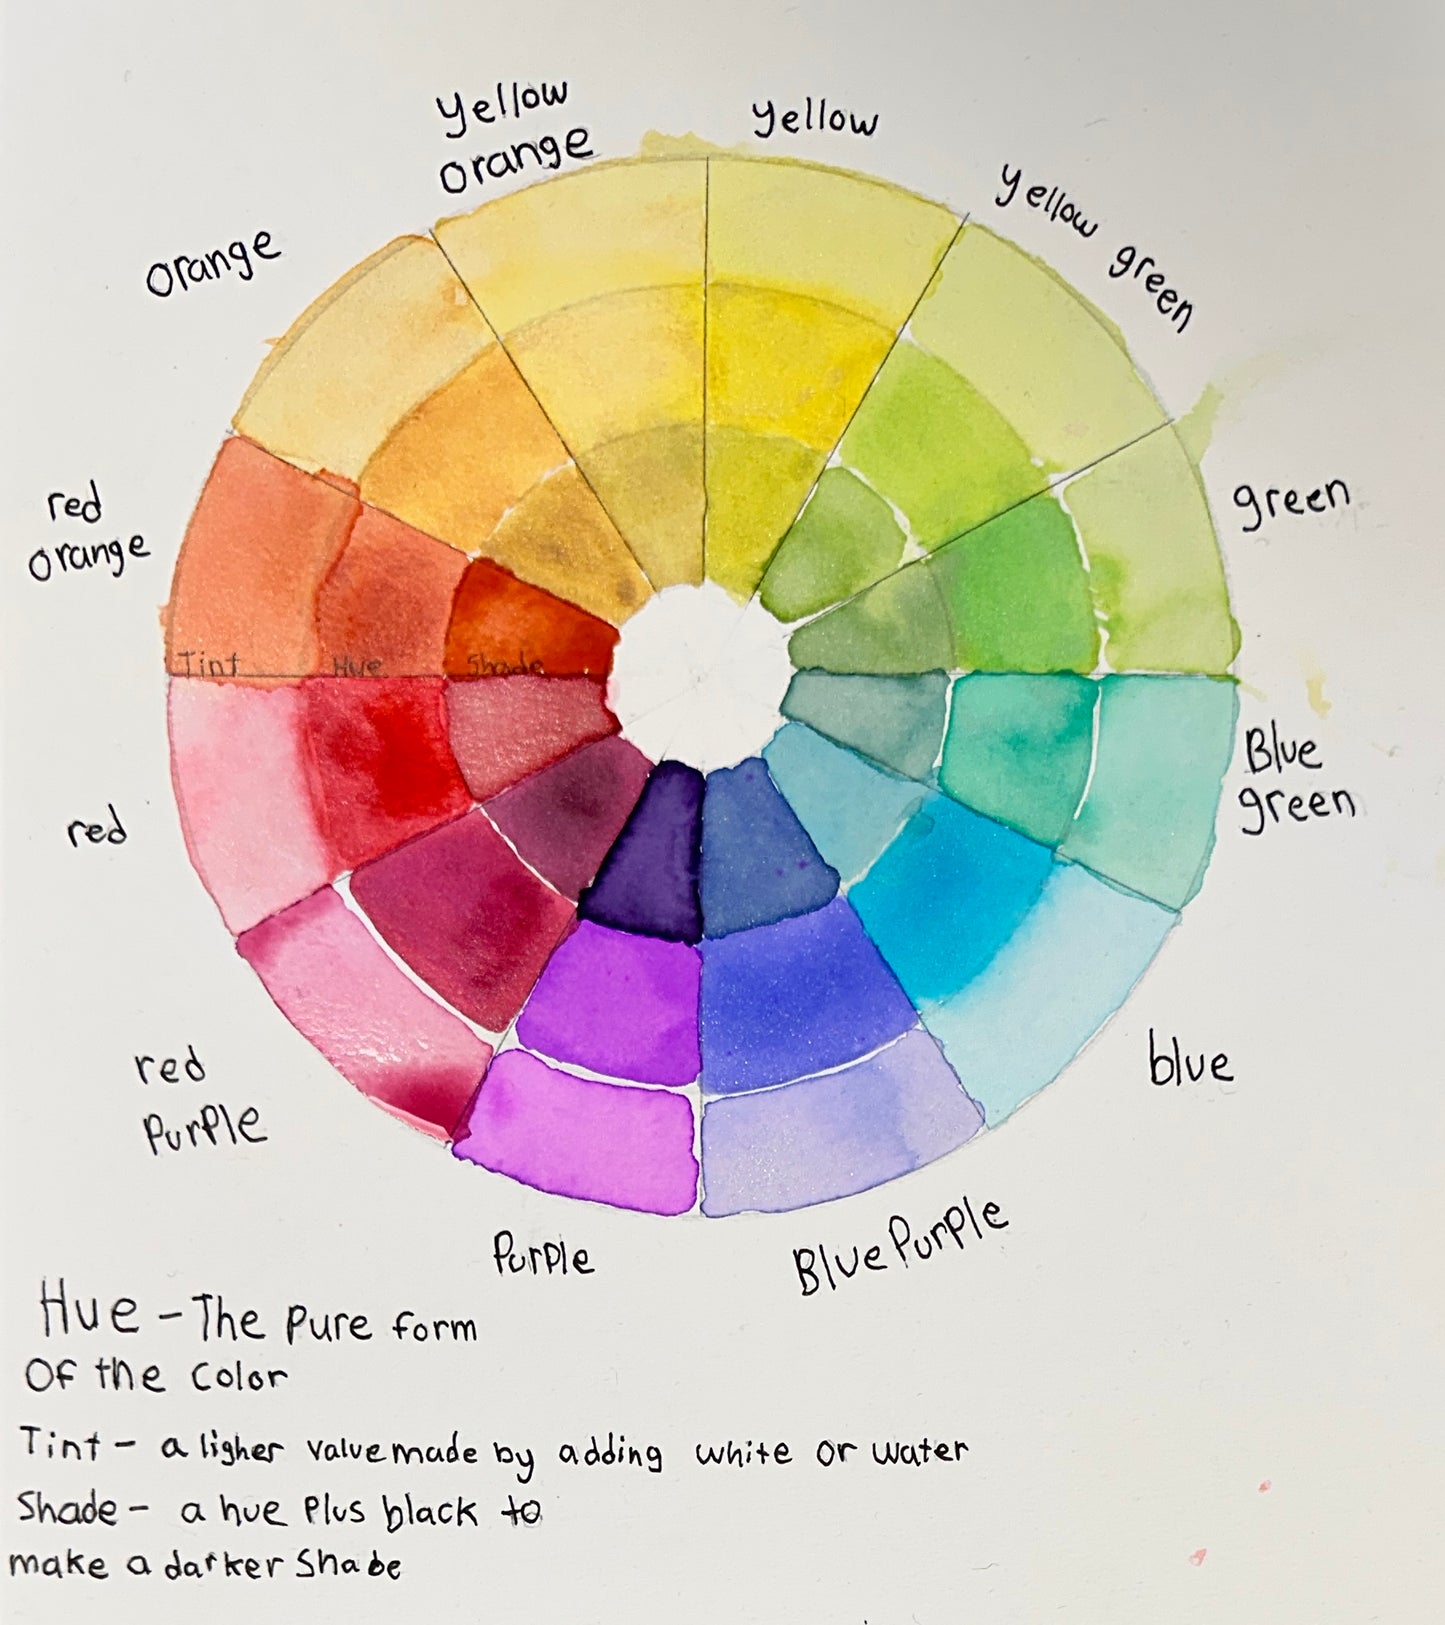 yellow
orange
yellow
yellow green
orange
green
red
orange
Tint Hue Shade
Blue
green
red
blue
red
Purple
Purple
Blue Purple
Hue - The Pure form
Of the Color
Tint - a ligher value made by adding white or water
Shade - a hue Plus black to
make a darker Shabe